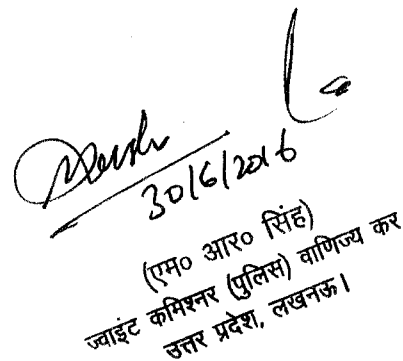 30/6/2016
(एम० आर० सिंह)
ज्वाइंट कमिश्नर (पुलिस) वाणिज्य कर
उत्तर प्रदेश, लखनऊ।